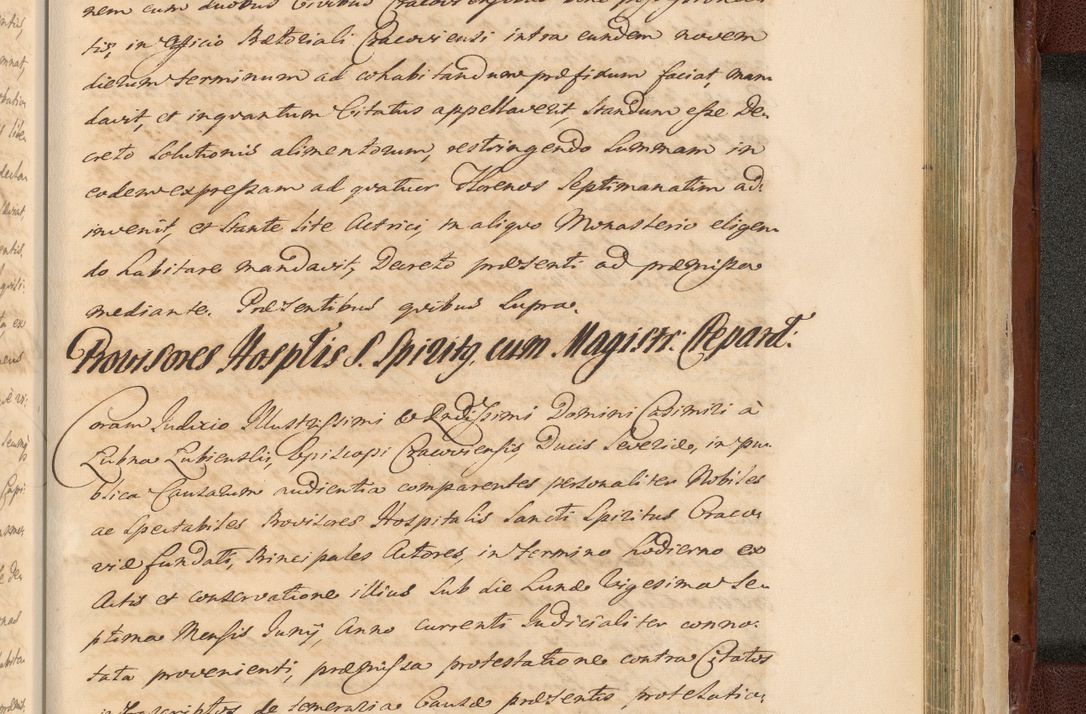 nem cum duobus Civibus Cracoviensibus
tis, in Officio Prætoriali Cracoviensi intra eundem novem
dierum terminum ad cohabitandum præfixum faciat, man
davit, et inquantum Citatus appellaverit, standum esse De-
creto Solutionis alimentorum, restringendo Summam in
eodem expressam ad quatuor Florenos Septimanatim ad-
invenit, et stante lite Actrici, in aliquo Monasterio eligen-
do habitare mandavit, Decreto præsenti ad præmissa
mediante. Præsentibus quibus supra.
Provisores Hosptlis S. Spiritg, cum Magistr: Crepard:
Coram Judicio Illustrissimi & Rndissimi Domini Casimiri à
Lubna Lubienski, Episcopi Cracoviensis Ducis Severiæ, in pu-
blica Causarum audientia comparentes personaliter Nobiles
ac Spectabiles Provisores Hospitalis Sancti Spiritus Craco-
viæ fundati, Principales Actores, in termino hodierno ex
Actis et conservatione illius sub die Lunæ Vigesima Se-
ptima Mensis Junij, Anno currenti Judicialiter conno-
tata provenienti, præmissa protestatione contra Citatos
infrascriptos de temeraria Causæ præsentis, protelatio-